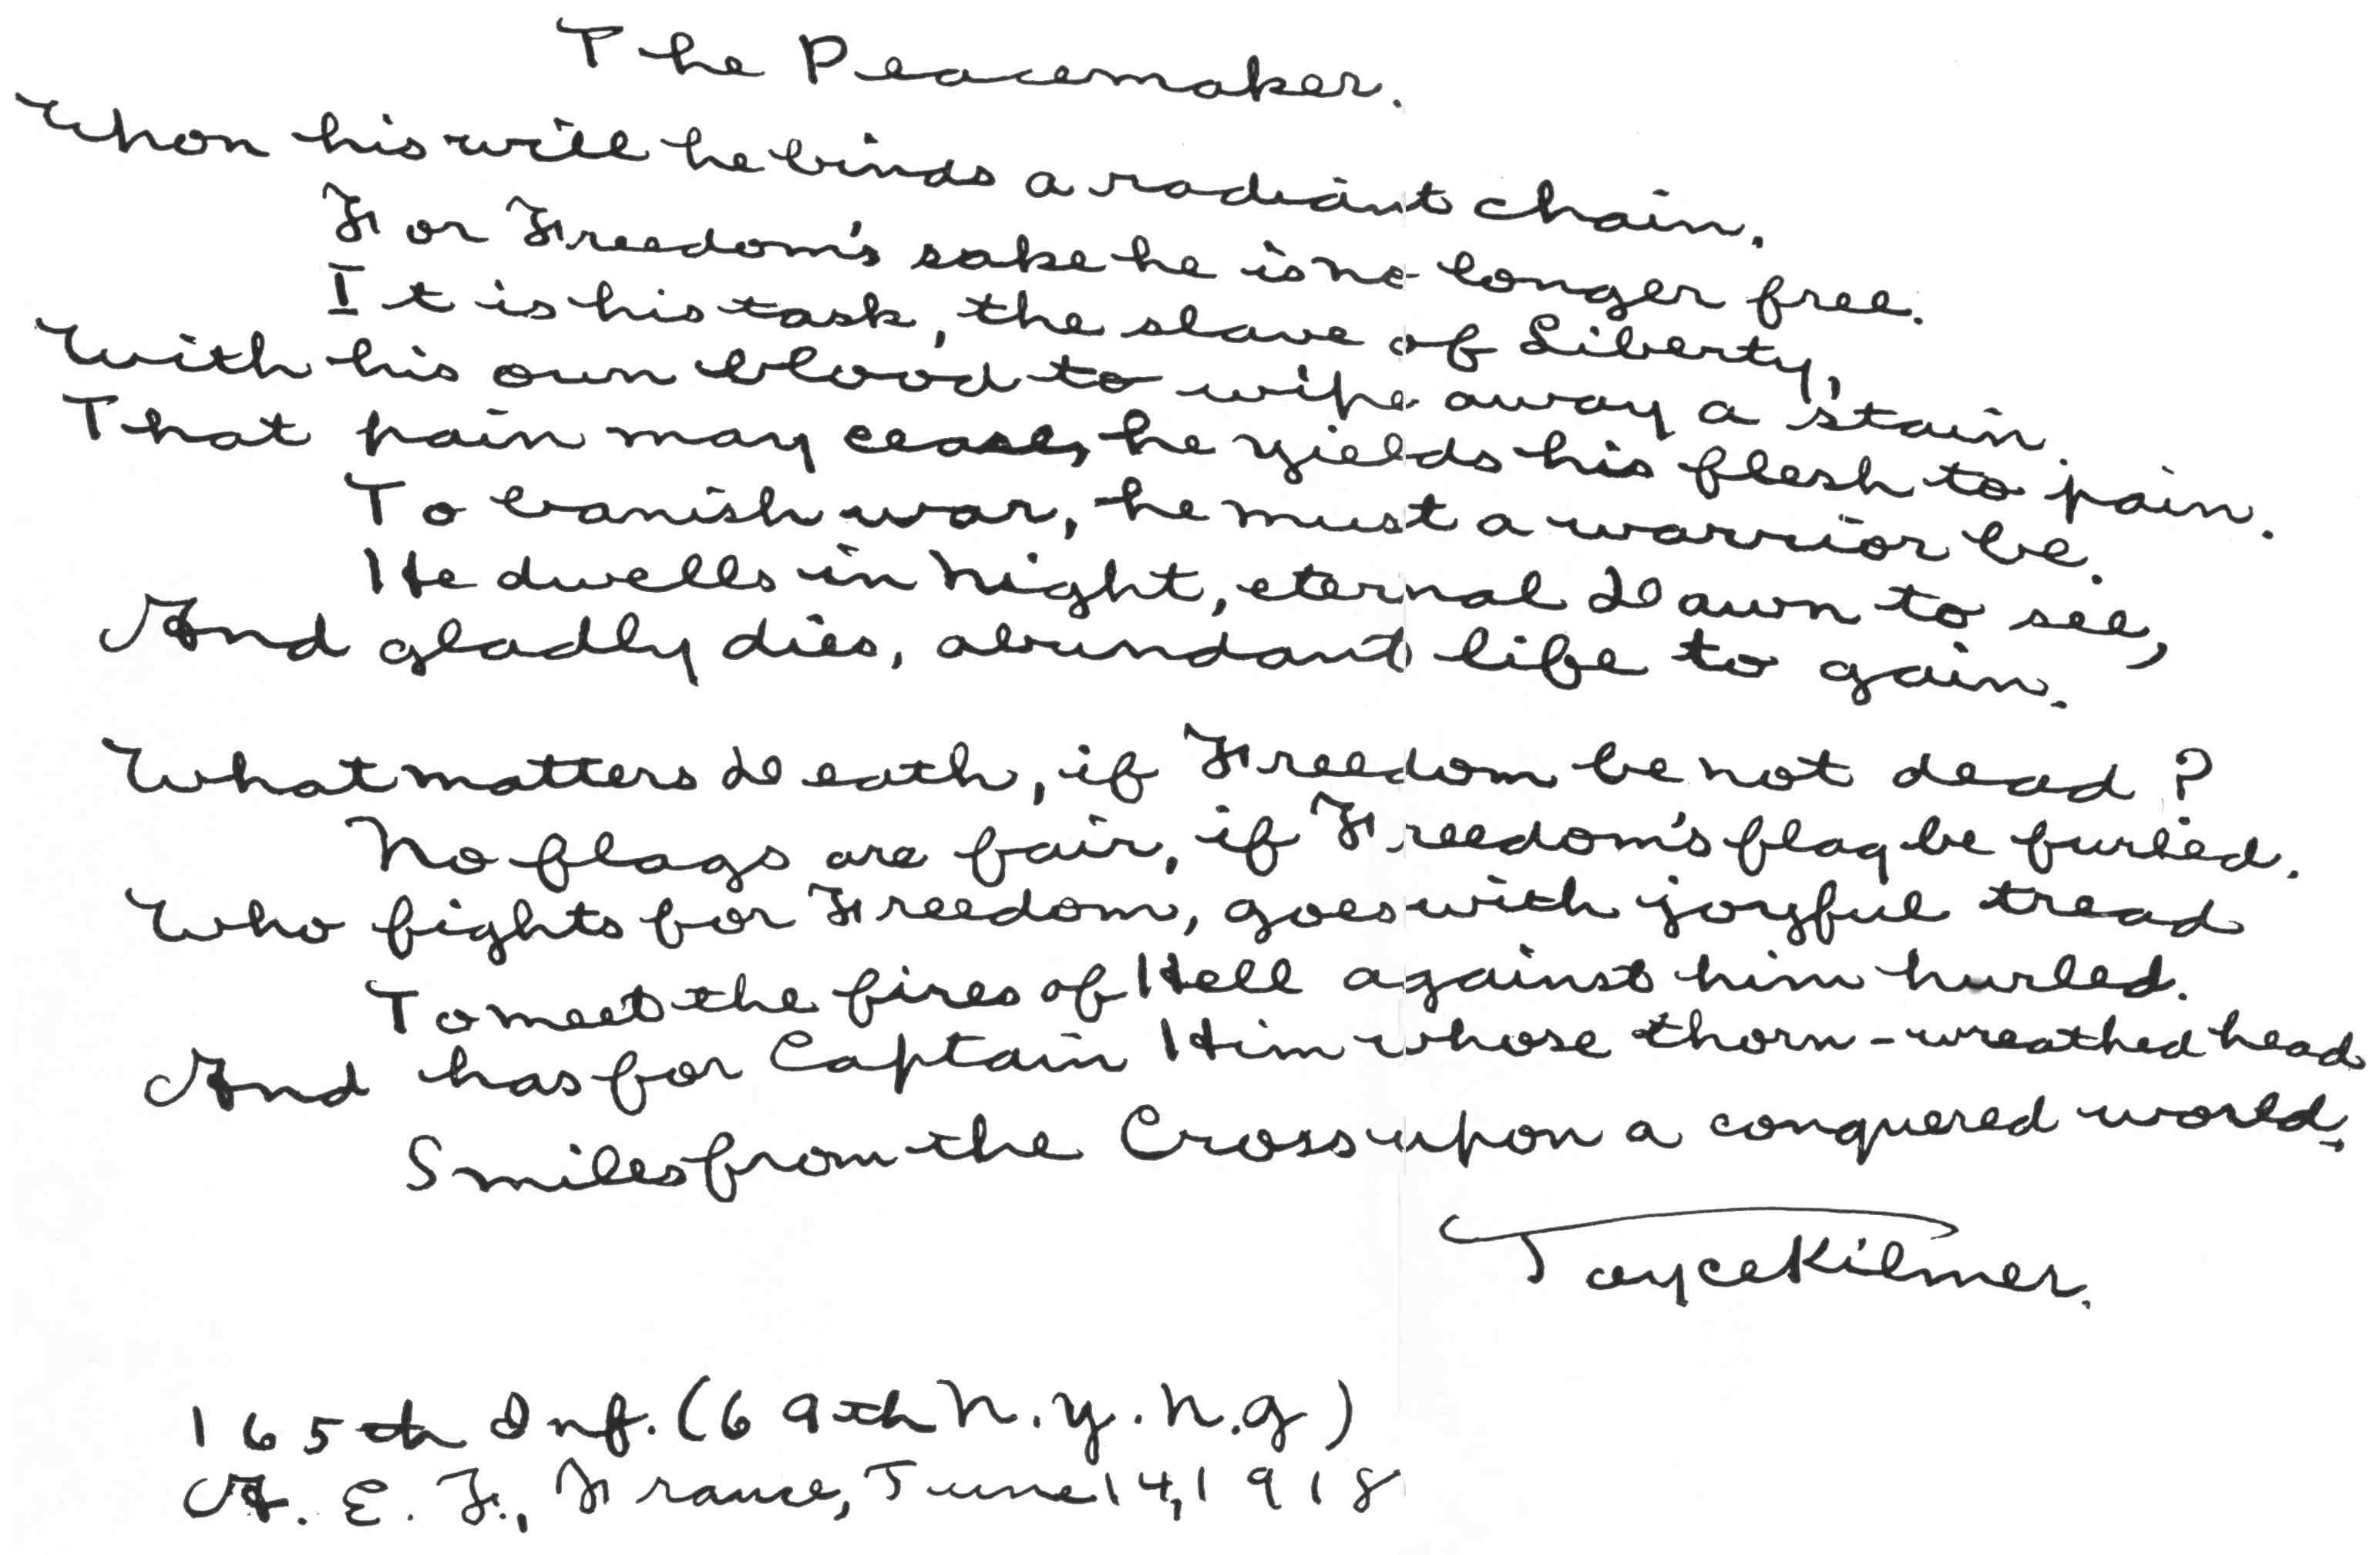 The Peacemaker.
Upon his will he binds a radiant chain,
For Freedom's sake he is no longer free.
It is his task, the slave of Liberty,
With his own blood to wipe away a stain.
That pain may cease, he yields his flesh to pain.
To banish war, he must a warrior be.
He dwells in Night, eternal Dawn to see,
And gladly dies, abundant life to gain.
What matters Death, if Freedom be not dead?
No flags are fair, if Freedom's flag be furled.
Who fights for Freedom, goes with joyful tread
To meet the fires of Hell against him hurled.
And has for Captain Him whose thorn-wreathed head
Smiles from the Cross upon a conquered world.
Joyce Kilmer.
165th Inf. (69th N.Y.N.G)
A. E. F., France, June 14, 1918